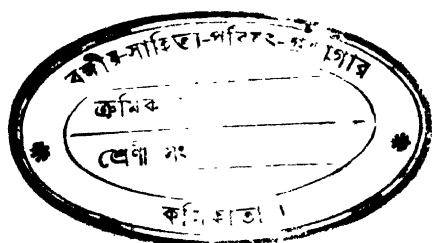 বঙ্গীয়-সাহিত্য-পরিষৎ-গ্রন্থাগার
ক্রমিক
শ্রেণী নং
কলিকাতা ।